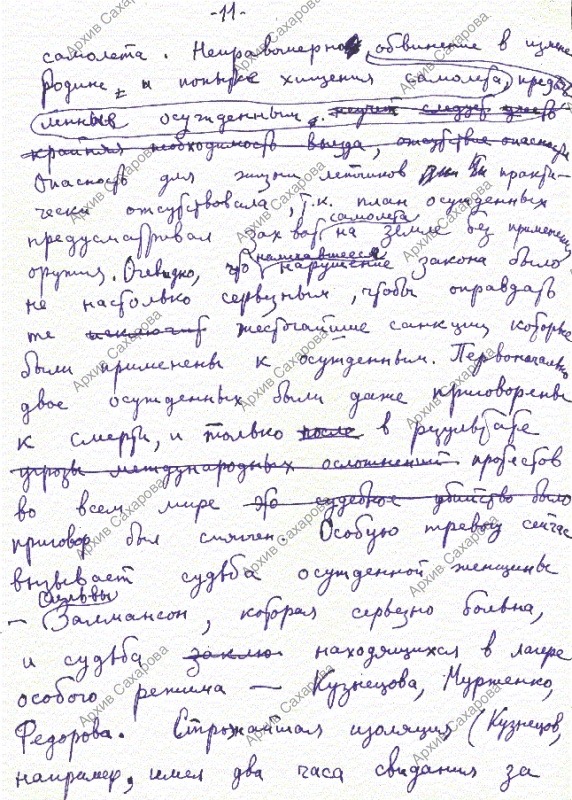 -11-
самолета. Неправомерно обвинение в измене
Родине, и попытке хищения самолета, предъяв-
ленные осужденным, неучет следует учесть
крайняя необходимость выезда, отсутствие опасности
Опасность для жизни летчиков практи-
чески отсутствовала, т.к. план осужденных
предусматривал захват самолета на земле без применения
оружия. Очевидно, что имевшееся нарушение закона было
не настолько серьезным, чтобы оправдать
те жесточайшие санкции, которые
были применены к осужденным. Первоначально
двое осужденных были даже приговорены
к смерти, и только после в результате
угрозы международных осложнений протестов
во всем мире это судебное убийство было
приговор был смягчен. Особую тревогу сейчас
вызывает судьба осужденной женщины
Сильвы
– Залмансон, которая серьезно больна,
и судьба заклю находящихся в лагере
особого режима — Кузнецова, Мурженко,
Федорова. Строжайшая изоляция (Кузнецов,
например, имел два часа свидания за
Архив Сахарова